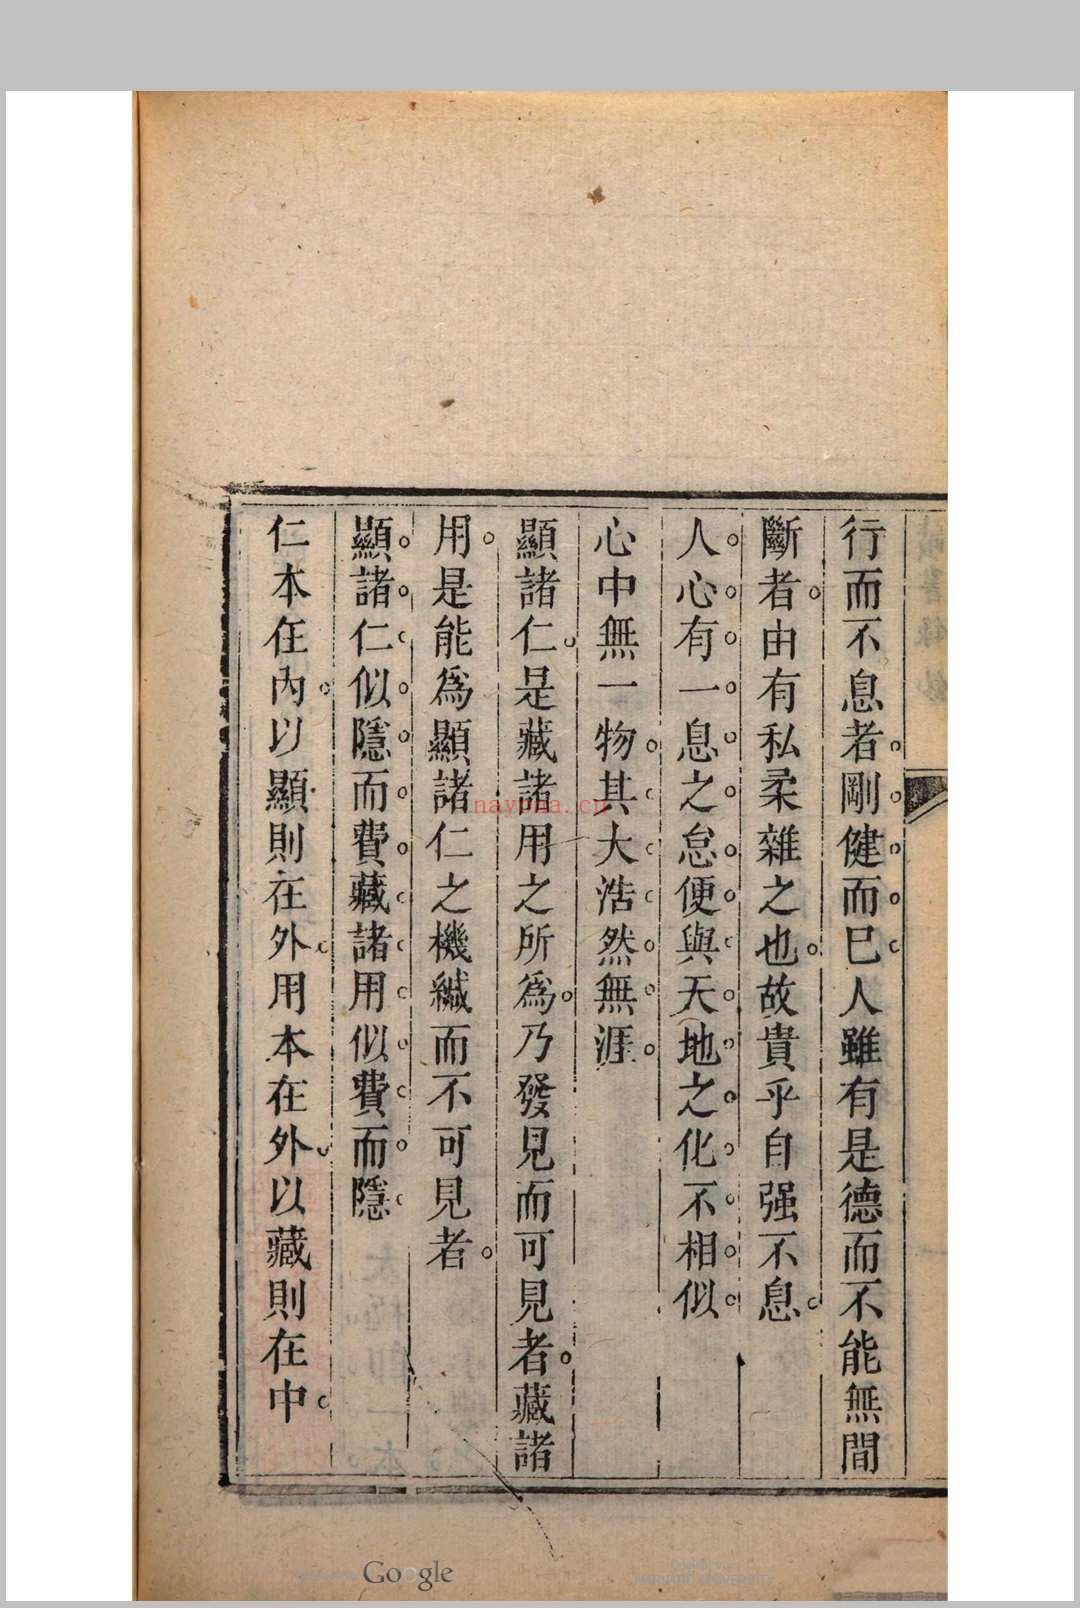 行而不息者剛健而已人雖有是德而不能無間
斷者由有私柔雜之也故貴乎自强不息
人心有一息之怠便與天地之化不相似
心中無一物其大浩然無涯
顯諸仁是藏諸用之所爲乃發見而可見者藏諸
用是能爲顯諸仁之機緘而不可見者
顯諸仁似隱而費藏諸用似費而隱
仁本在內以顯則在外用本在外以藏則在中
nayona.cn
Google